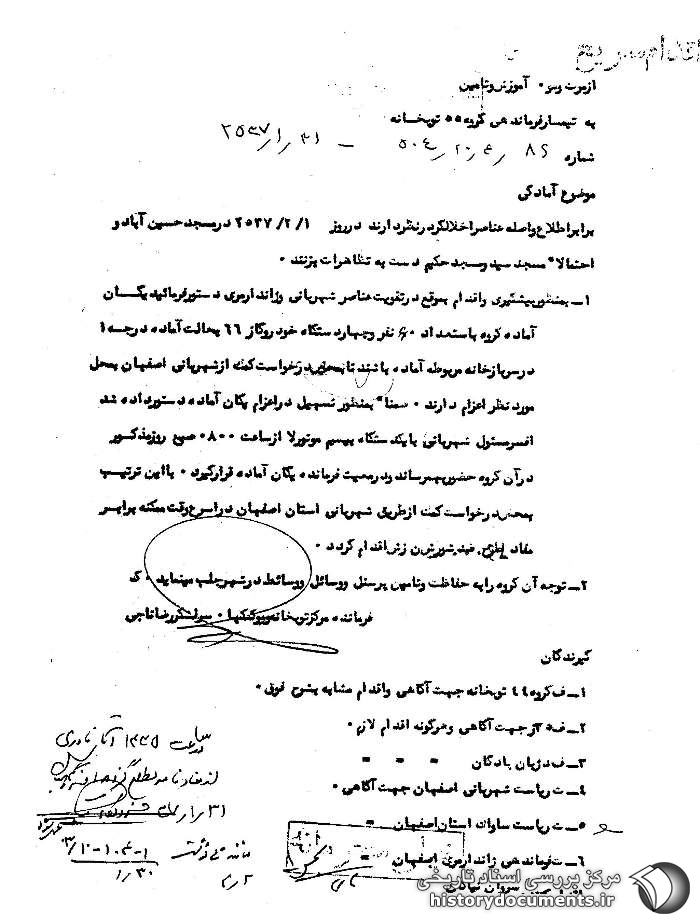 اقدام سریع
از م ت و م . آموزش و تامین
به تیمسار فرماندهی گروه ۵۵ توپخانه
شماره ۸۶ / ۴ / ۲۰ / ۵۰۴ – ۳۱ / ۱ / ۲۵۳۷
موضوع آمادگی
برابر اطلاع واصله عناصر اخلالگر در نظر دارند در روز ۲۵۳۷/۲/۱ در مسجد حسین آباد و
احتمالا" مسجد سید و مسجد حکیم دست به تظاهرات بزنند .
۱ــ بمنظور پیشگیری و اقدام بموقع در تقویت عناصر شهربانی و ژاندارمری دستور فرمائید یکان
آماده گروه باستعداد ۶۰ نفر و چهار دستگاه خودرو گاز ۶۶ بحالت آماده درجه ۱
در سربازخانه مربوطه آماده باشند تا بمحض درخواست کمک از شهربانی اصفهان بمحل
مورد نظر اعزام دارند . ضمنا" بمنظور تسهیل در اعزام یکان آماده دستور داده شد
افسر مسئول شهربانی با یکدستگاه بیسیم موتورلا از ساعت ۰۸۰۰ صبح روز مذکور
در آن گروه حضور بهمرساند و در معیت فرمانده یکان آماده قرار گیرد . با این ترتیب
بمحض درخواست کمک از طریق شهربانی استان اصفهان در اسرع وقت ممکنه برابر
مفاد طرح ضد شورش اقدام گردد .
۲ــ توجه آن گروه را به حفاظت و تامین پرسنل و وسائل و وسائط در شهر جلب مینماید . ک
فرمانده مرکز توپخانه و موشکها . سرلشگر رضا ناجی
گیرندگان
۱ــ ف گروه ۴۴ توپخانه جهت آگاهی و اقدام مشابه بشرح فوق .
۲ــ ف جهت آگاهی و هرگونه اقدام لازم .
۳ــ ف دژبان پادگان " " "
۴ــ ت ریاست شهربانی اصفهان جهت آگاهی .
۵ــ ت ریاست ساواک استان اصفهان "
۶ــ ت فرماندهی ژاندارمری اصفهان "
ساعت ۱۳۴۵
۳۱ / ۱
۱-۱۰۴-۱۰
۱/۳۰
۲/۲
مرکز بررسی اسناد تاریخی
historydocuments.ir